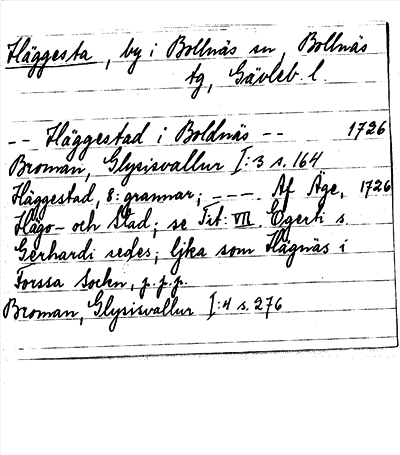 Häggesta, by i Bollnäs sn, Bollnäs
tg, Gävleb. l.
-- Häggestad i Boldnäs -- 1726
Broman, Glysisvallur I:3 s. 164
Häggestad, 8: grannar; ---- Af Åge, 1726
Hågo- och Stad; se Tit: VII. Egerti s.
Gerhardi sedes; lika som Hägnäs i
Forssa Sockn, p.p.p.
Broman, Glysisvallur I:4 s. 276